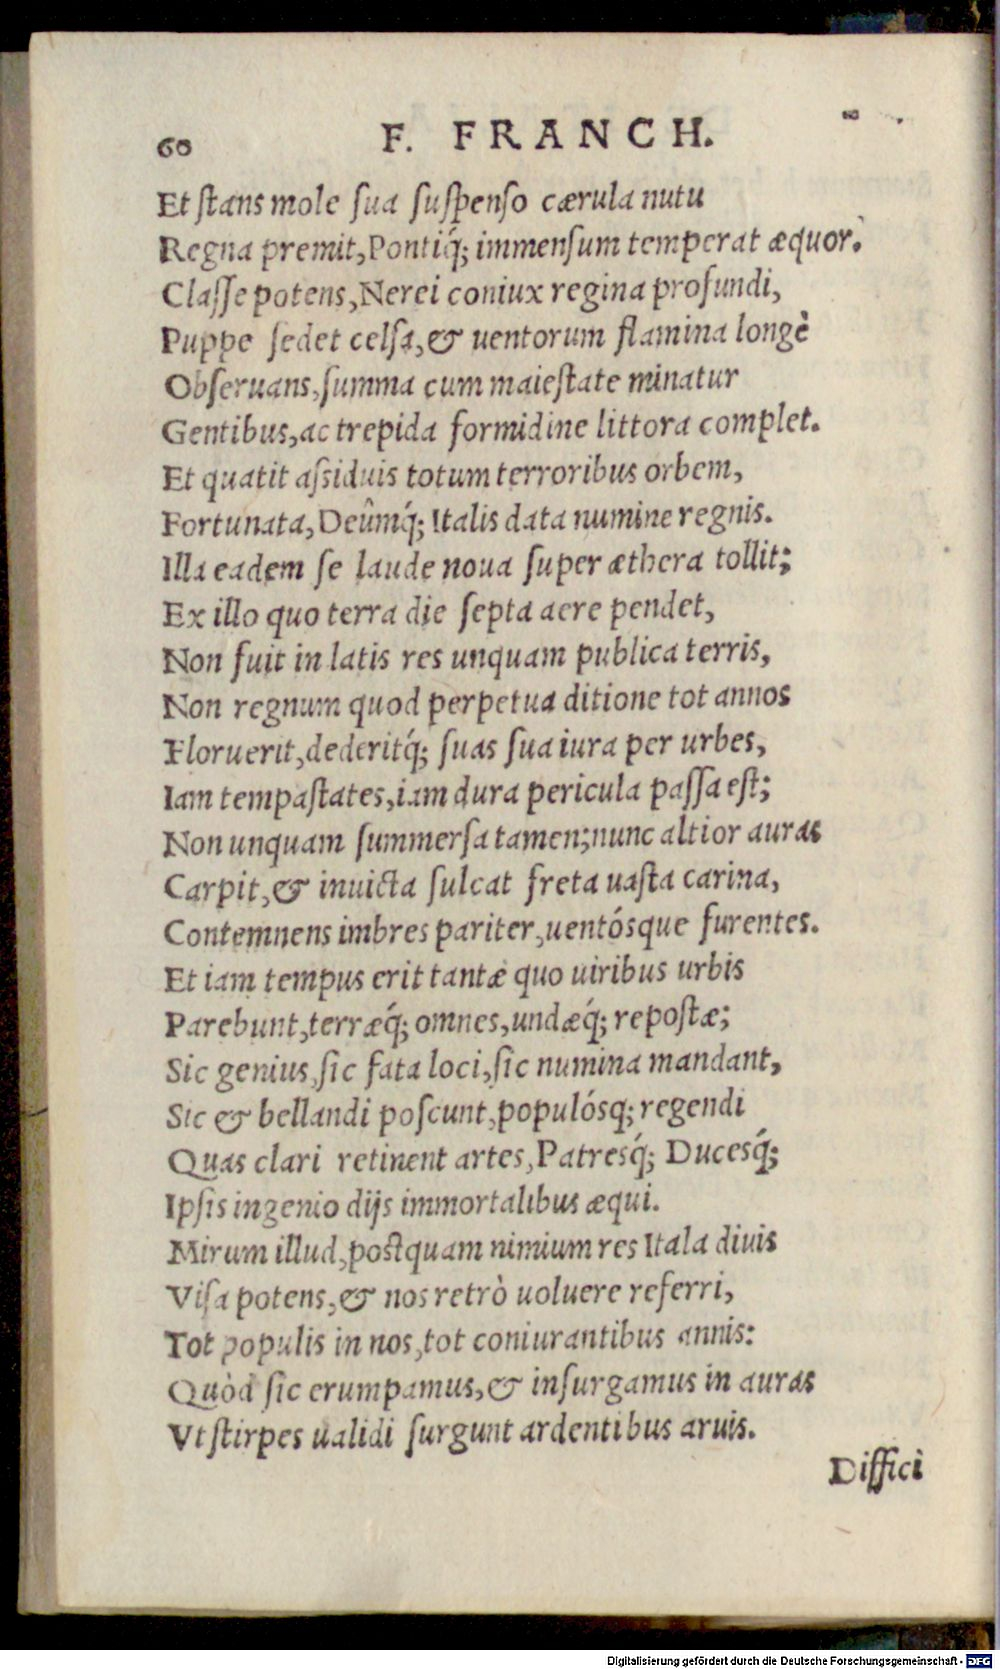 60 F. FRANCH.
Et ſtans mole ſua ſuſpenſo cærula nutu
Regna premit, Pontiq́; immenſum temperat æquor.
Claſſe potens, Nerei coniux regina profundi,
Puppe ſedet celſa, & uentorum flamina longè
Obſeruans, ſumma cum maieſtate minatur
Gentibus, ac trepida formidine littora complet.
Et quatit aſsiduis totum terroribus orbem,
Fortunata, Deûmq́; Italis data numine regnis.
Illa eadem ſe laude noua ſuper æthera tollit;
Ex illo quo terra die ſepta aere pendet,
Non fuit in latis res unquam publica terris,
Non regnum quod perpetua ditione tot annos
Floruerit, dederitq́; ſuas ſua iura per urbes,
Iam tempaſtates, iam dura pericula paſſa eſt;
Non unquam ſummerſa tamen; nunc altior auras
Carpit, & inuicta ſulcat freta uaſta carina,
Contemnens imbres pariter, uentósque furentes.
Et iam tempus erit tantæ quo uiribus urbis
Parebunt, terræq́; omnes, undæq́; repoſtæ;
Sic genius, ſic fata loci, ſic numina mandant,
Sic & bellandi poſcunt, populósq; regendi
Quas clari retinent artes, Patresq́; Ducesq́;
Ipſis ingenio dijs immortalibus æqui.
Mirum illud, poſtquam nimium res Itala diuis
Viſa potens, & nos retrò uoluere referri,
Tot populis in nos, tot coniurantibus annis:
Quòd ſic erumpamus, & inſurgamus in auras
Vt ſtirpes ualidi ſurgunt ardentibus aruis.
Diffici
Digitalisierung gefördert durch die Deutsche Forschungsgemeinschaft - DFG